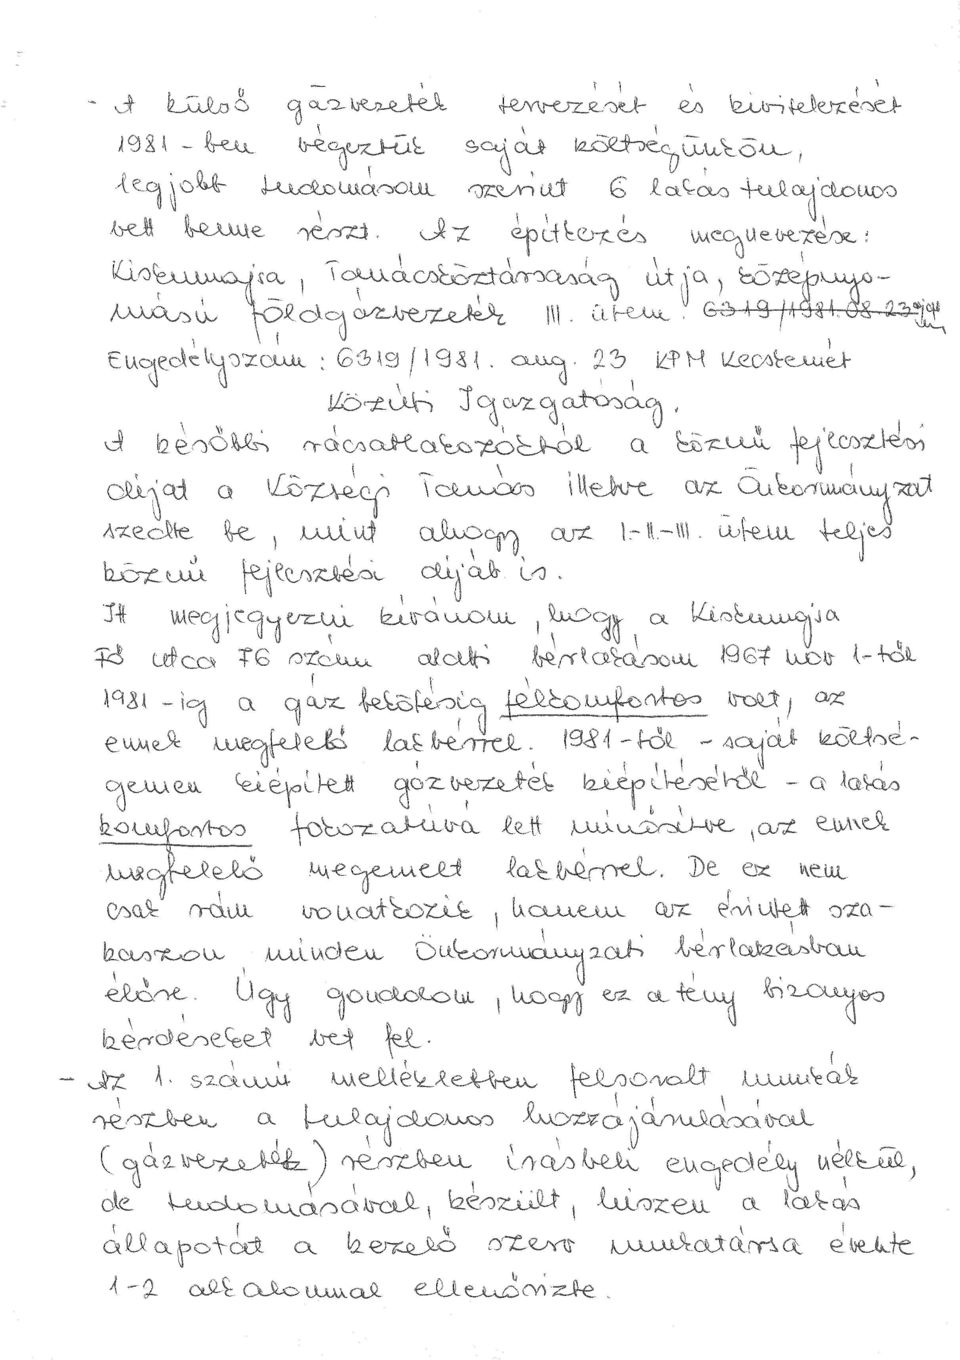 - A külső gázvezeték tervezését és kivitelezését
1981-ben végeztük saját költségünkön,
legjobb tudomásom szerint 6 lakás tulajdonos
vett benne részt. Az építkezés megnevezése:
Kiskunmajsa, Tanácsköztársaság útja, középnyo-
mású földgázvezeték III. ütem. 6319/1981.08.23
Engedélyszám: 6319/1981. aug. 23 KPM Kecskemét
Közúti Igazgatóság.
A későbbi rácsatlakozóktól a közmű fejlesztési
díjat a Községi Tanács illetve az Önkormányzat
szedte be, mint ahogy az I.-II.-III. ütem teljes
közmű fejlesztési díját is.
Itt megjegyezni kívánom, hogy a Kiskunmajsa
utca 76 szám alatti bérlakásom 1967 nov 1-től
1981-ig a gáz bekötésig félkomfortos volt, az
ennek megfelelő lakbérrel. 1981-től - saját költsé-
gemen kiépített gázvezeték kiépítésétől - a lakás
komfortos fokozatúvá lett minősítve, az ennek
megfelelő megemelt lakbérrel. De ez nem
csak rám vonatkozik, hanem az érintett sza-
kaszon minden Önkormányzati bérlakásban
élőre. Úgy gondolom, hogy ez a tény bizonyos
kérdéseket vet fel.
- Az 1. számú mellékletben felsorolt munkák
részben a tulajdonos hozzájárulásával
(gázvezeték) részben írásbeli engedély nélkül,
de tudomásával, készült, hiszen a lakás
állapotát a kezelő szerv munkatársa évente
1-2 alkalommal ellenőrizte.